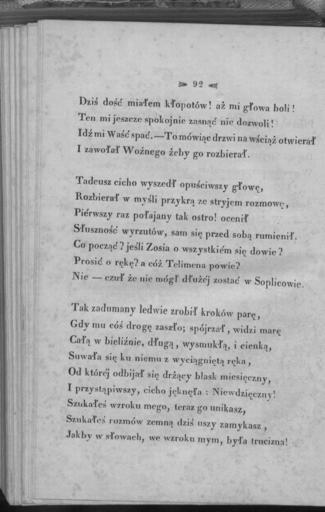 92
Dziś dość miałem kłopotów! aż mi głowa boli!
Ten mi jeszcze spokojnie zasnąć nie dozwoli!
Idź mi Waść spać.—To mówiąc drzwi na wściąż otwierał
I zawołał Woźnego żeby go rozbierał.
Tadeusz cicho wyszedł opuściwszy głowę,
Rozbierał w myśli przykrą ze stryjem rozmowę,
Piérwszy raz połajany tak ostro! ocenił
Słuszność wyrzutów, sam się przed sobą rumienił.
Co począć? jeśli Zosia o wszystkiém się dowie?
Prosić o rękę? a cóż Telimena powie?
Nie — czuł że nie mógł dłużéj zostać w Soplicowie.
Tak zadumany ledwie zrobił kroków parę,
Gdy mu cóś drogę zaszło; spójrzał, widzi marę
Całą w bieliźnie, długą, wysmukłą, i cienką,
Suwała się ku niemu z wyciągniętą ręką,
Od któréj odbijał się drżący blask miesięczny,
I przystąpiwszy, cicho jęknęła: Niewdzięczny!
Szukałeś wzroku mego, teraz go unikasz,
Szukałeś rozmów zemną dziś uszy zamykasz,
Jakby w słowach, we wzroku mym, była trucizna!